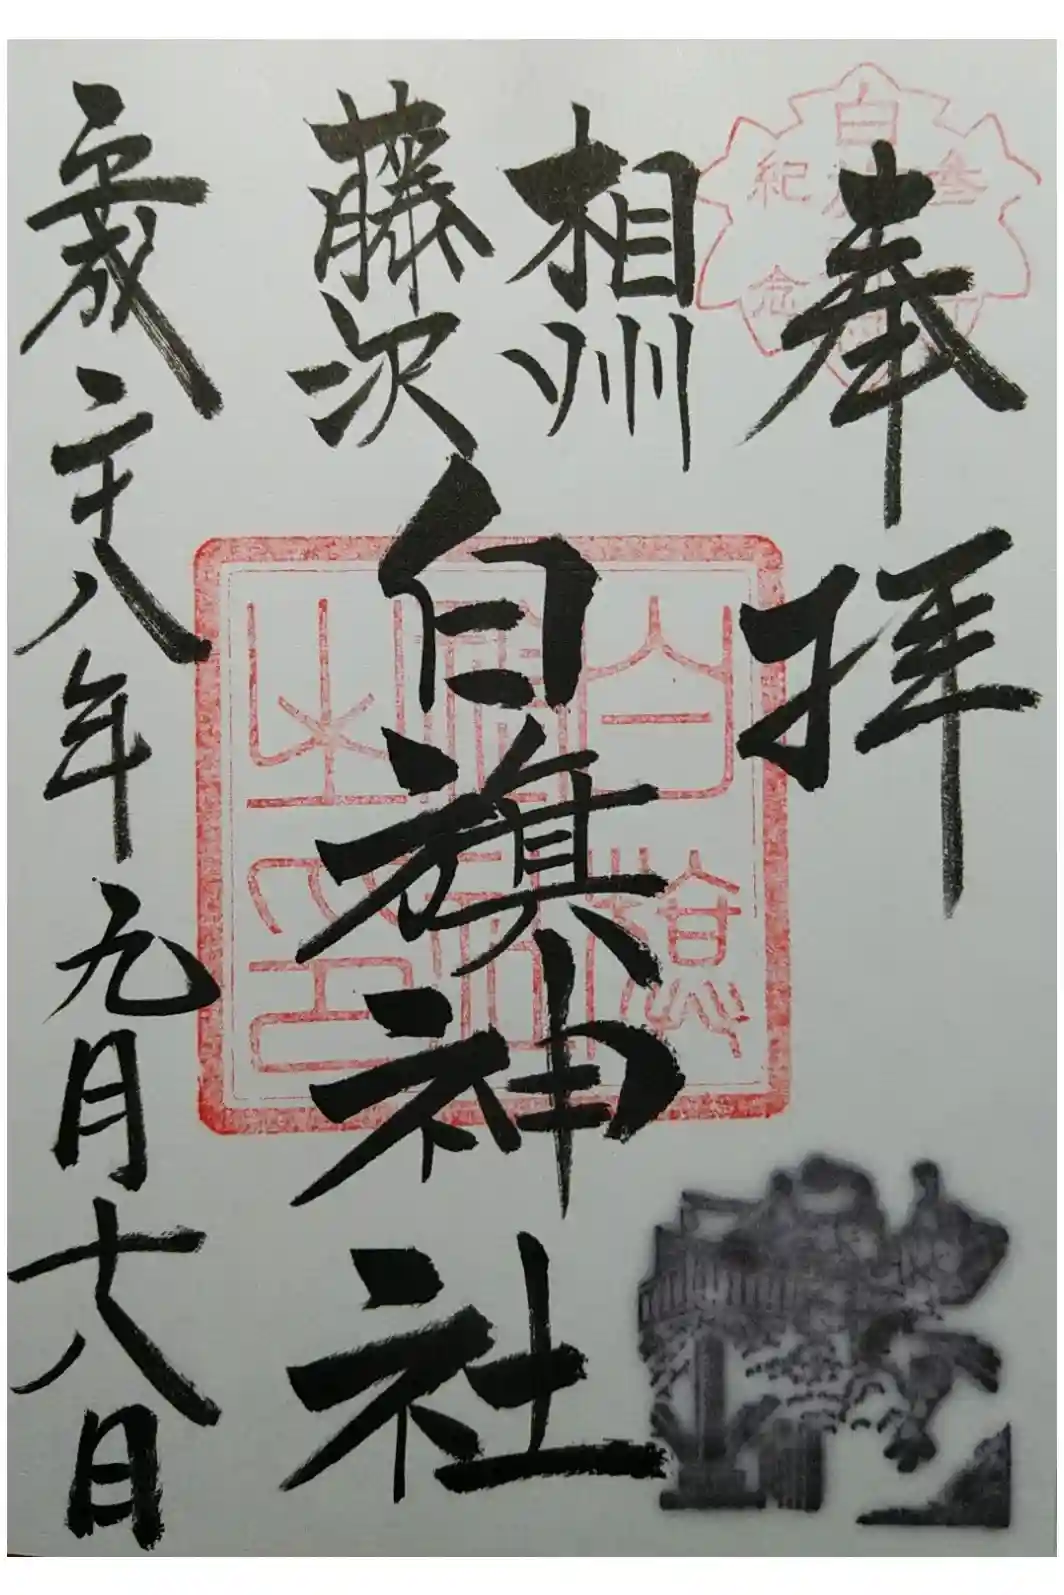 奉拝
相州
藤沢
白旗神社
平成二十八年九月十八日
白旗神社之印